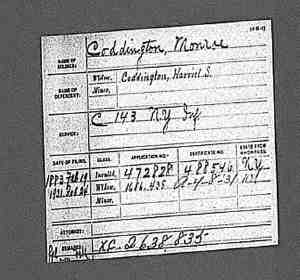 NAME OF SOLDIER: Coddington, Monroe
NAME OF DEPENDENT: Widow, Coddington, Harriet S.
Minor,
SERVICE: C 143 N.Y. Inf.
DATE OF FILING. CLASS. APPLICATION NO. CERTIFICATE NO. STATE FROM WHICH FILED.
1883 Feb 19 Invalid, 472828 488546 N.Y.
1921 Feb 24 Widow, 1686.435
Minor,
ATTORNEY:
REMARKS: XC-2638835